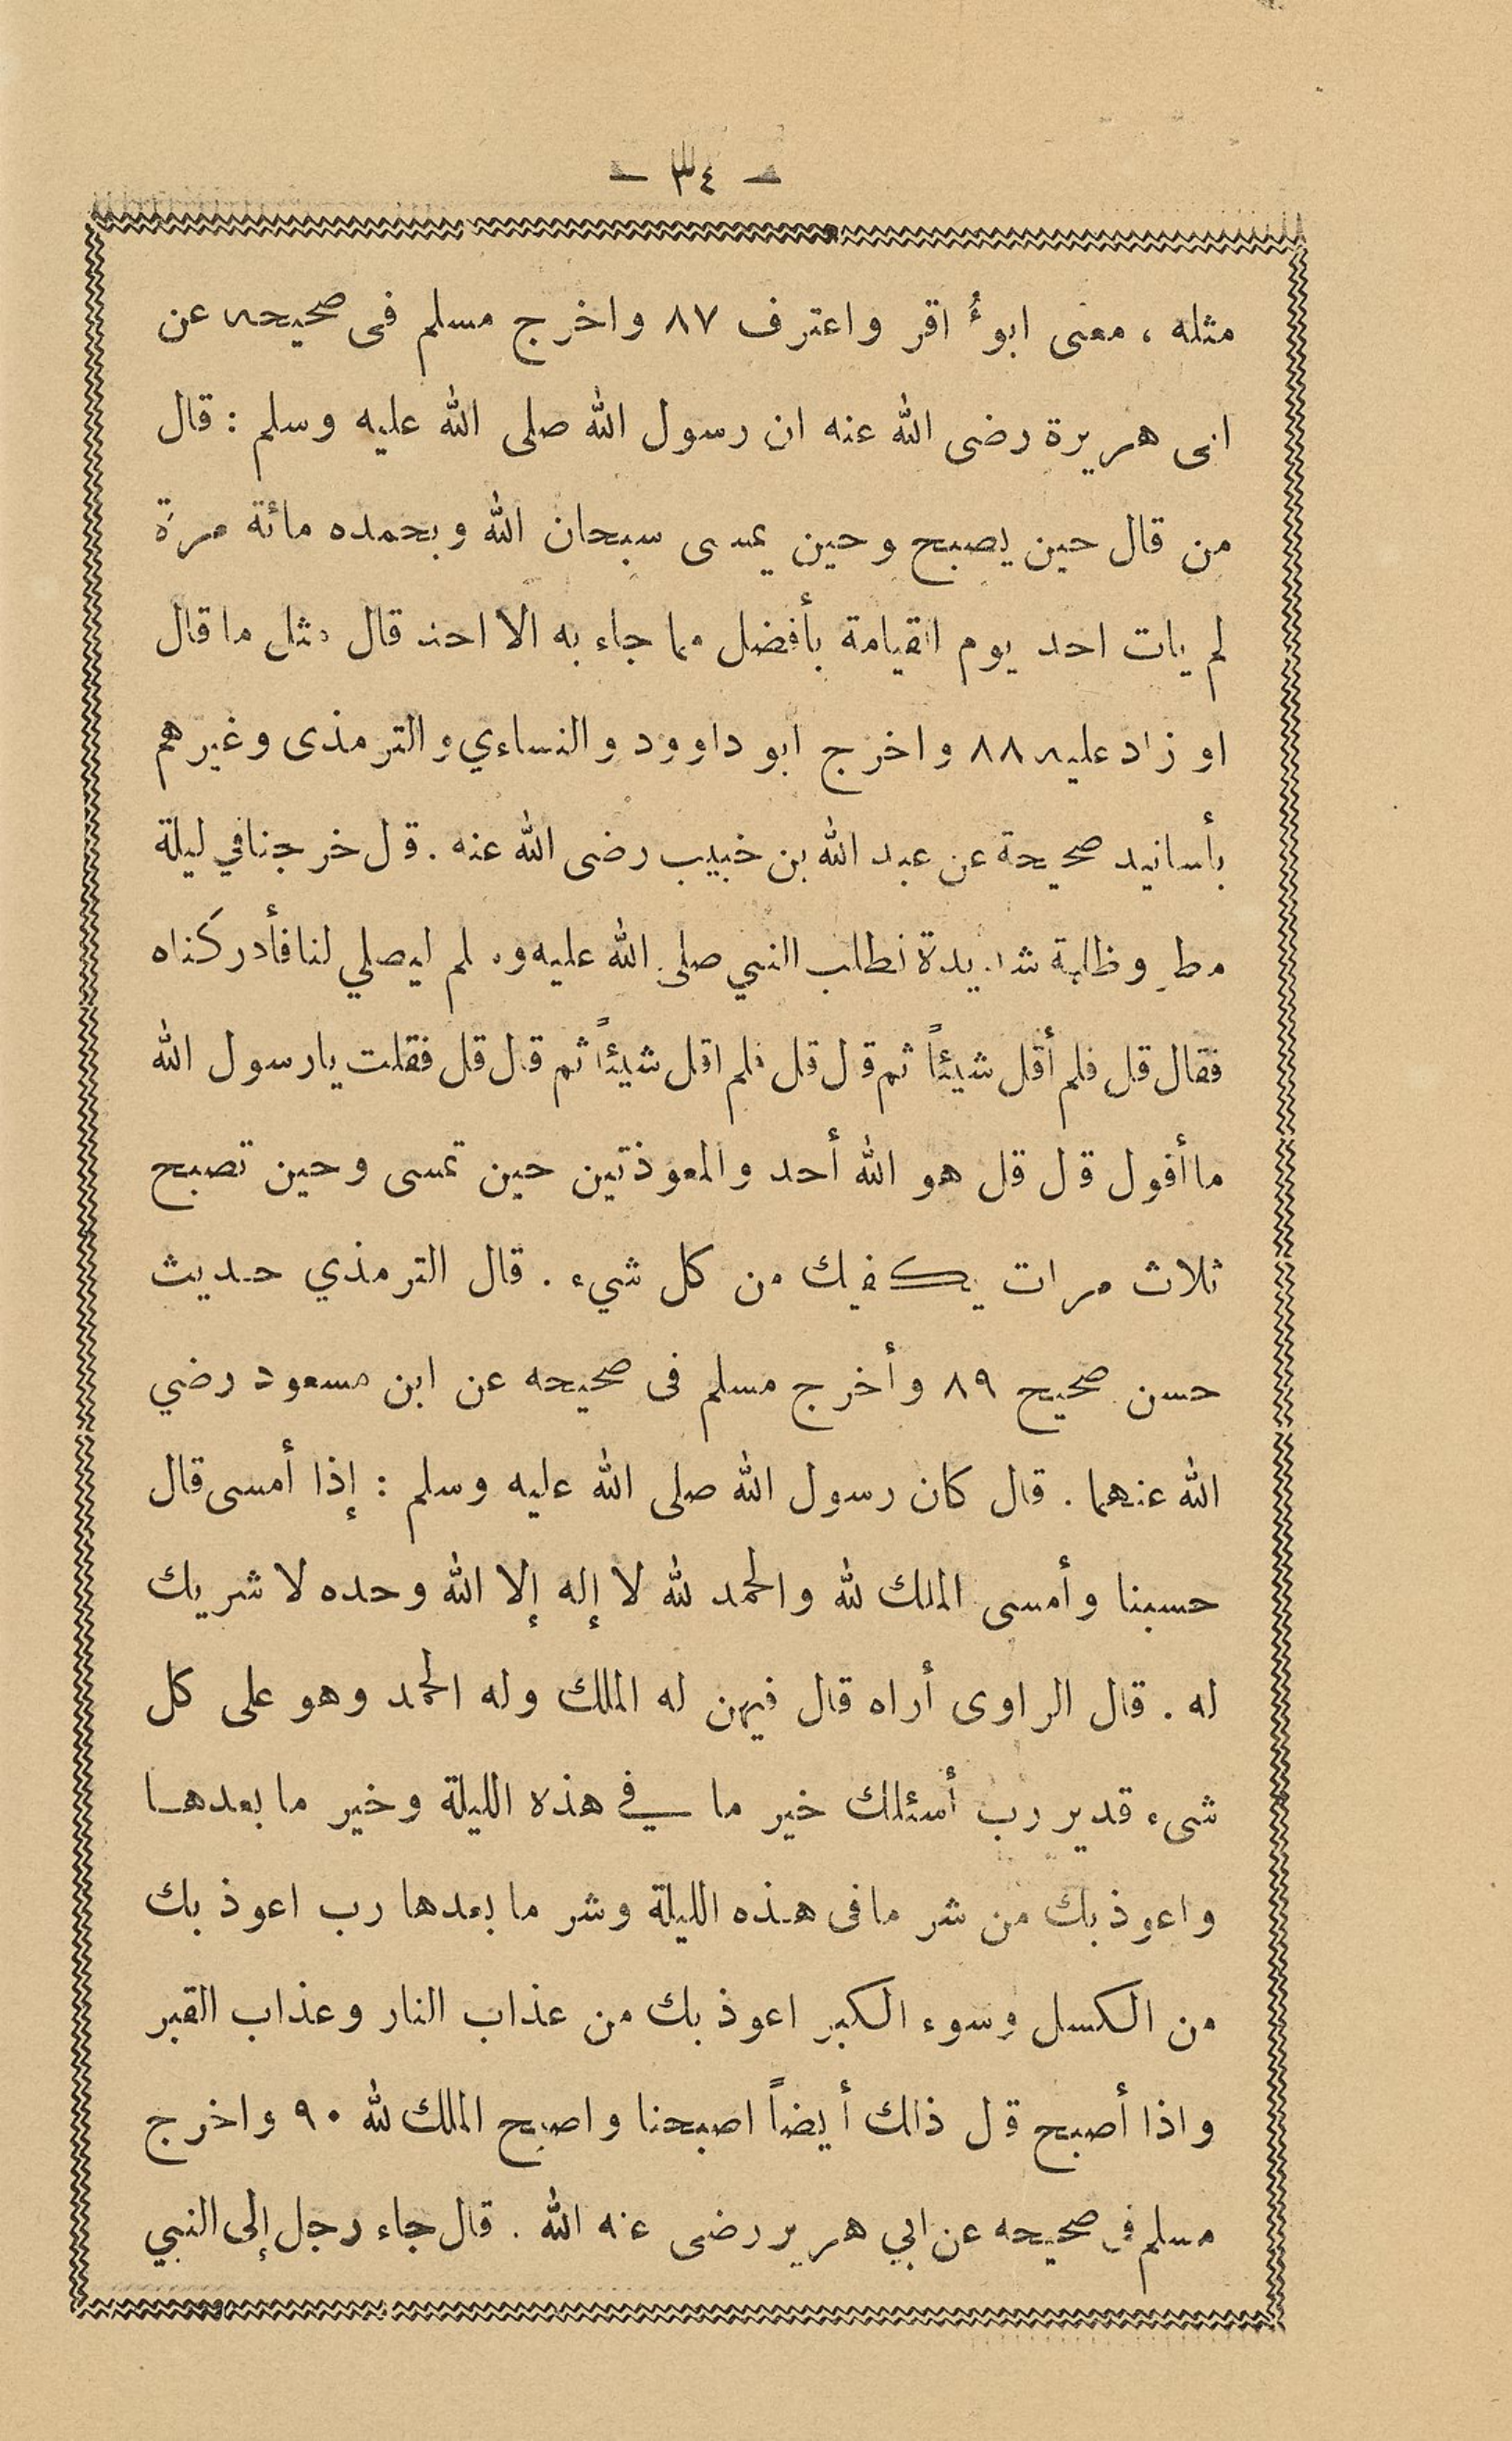 — ٣٤ —
مثله ، معنى ابوأ اقر واعترف ٨٧ واخرج مسلم فى صحيحه عن
ابى هريرة رضى الله عنه ان رسول الله صلى الله عليه وسلم : قال
من قال حين يصبح وحين يمسى سبحان الله وبحمده مائة مرة
لم يات احد يوم القيامة بأفضل مما جاء به الا احد قال مثل ما قال
او زاد عليه ٨٨ واخرج ابو داوود والنساءي والترمذى وغيرهم
بأسانيد صحيحة عن عبد الله بن خبيب رضى الله عنه . قال خرجنا في ليلة
مطر وظلمة شديدة نطلب النبي صلى الله عليه وسلم ليصلي لنا فأدركناه
فقال قل فلم أقل شيئاً ثم قال قل فلم اقل شيئاً ثم قال قل فقلت يارسول الله
ما أقول قال قل هو الله أحد والمعوذتين حين تمسى وحين تصبح
ثلاث مرات يكفيك من كل شيء . قال الترمذي حديث
حسن صحيح ٨٩ وأخرج مسلم فى صحيحه عن ابن مسعود رضي
الله عنهما . قال كان رسول الله صلى الله عليه وسلم : إذا أمسى قال
حسبنا وأمسى الملك لله والحمد لله لا إله إلا الله وحده لا شريك
له . قال الراوى أراه قال فيهن له الملك وله الحمد وهو على كل
شىء قدير رب أسئلك خير ما في هذه الليلة وخير ما بعدها
واعوذ بك من شر مافى هذه الليلة وشر ما بعدها رب اعوذ بك
من الكسل وسوء الكبر اعوذ بك من عذاب النار وعذاب القبر
واذا أصبح قال ذالك أيضاً اصبحنا واصبح الملك لله ٩٠ واخرج
مسلم فى صحيحه عن ابي هرير رضى عنه الله . قال جاء رجل إلى النبي